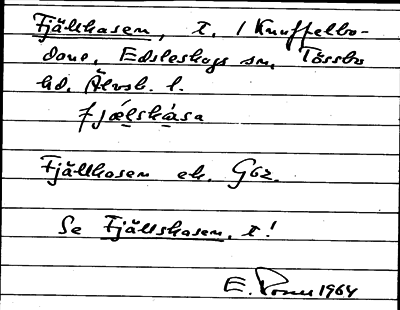 Fjällhasen, t. i Knuffelbo-
darne, Edsleskogs sn, Tössbo
hd. Älvsb. l.
fjælskása
Fjällhasen ek. G62.
Se Fjällshasen, t!
E. 1964